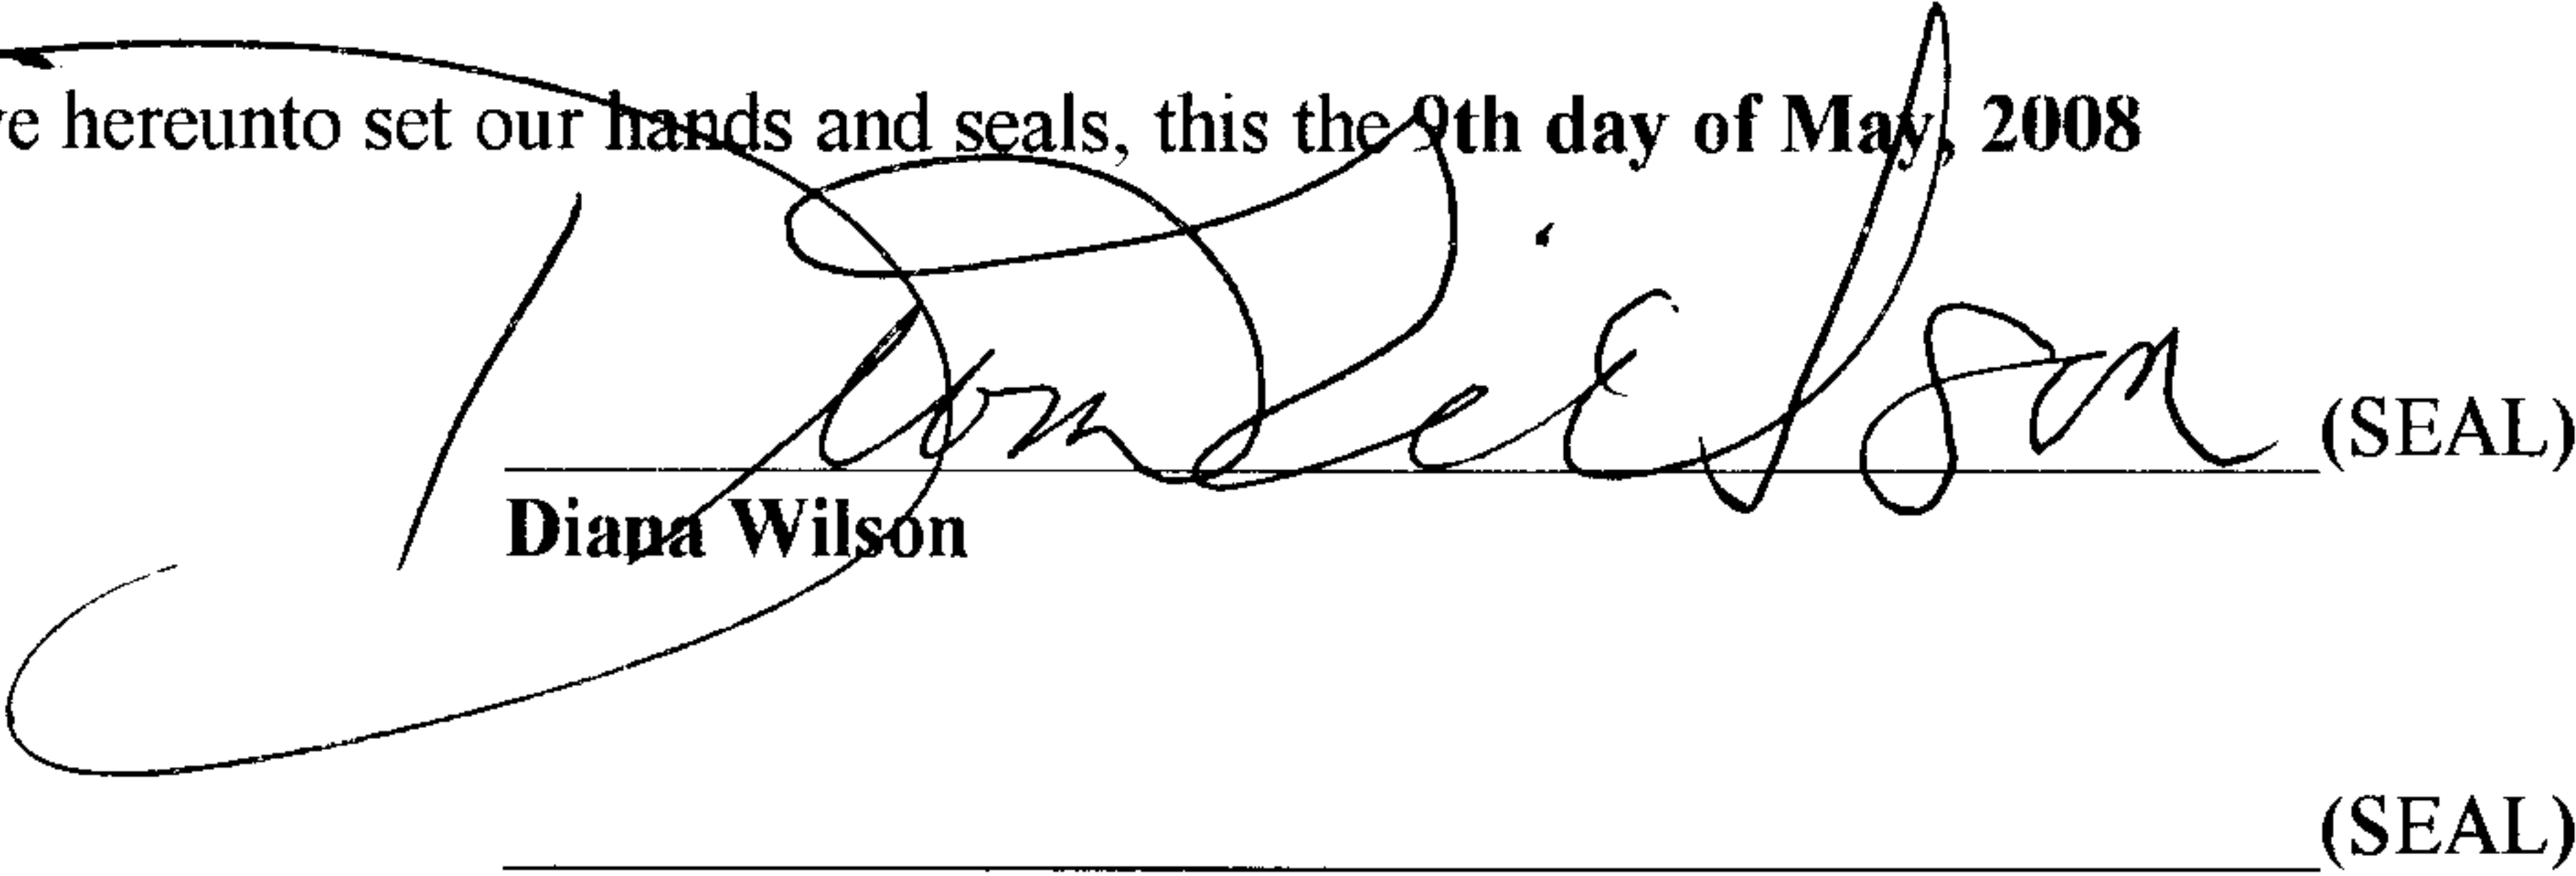 e hereunto set our hands and seals, this the 9th day of May, 2008
(SEAL)
Diana Wilson
(SEAL)